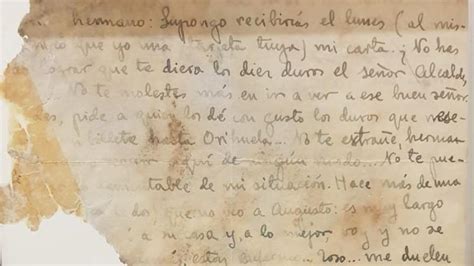 hermano: Supongo recibirás el lunes (al mis-
mo que yo una tarjeta tuya) mi carta. ¿No has
lograr que te diera los diez duros el señor Alcalde
No te molestes más en ir a ver a ese buen señor
pide a quien los dé con gusto los duros que nece-
billete hasta Orihuela... No te extrañe, herman-
aquí de algún modo... No te pue-
lamentable de mi situación. Hace más de una
que no veo a Augusto: es muy largo
a su casa y, a lo mejor, voy y no se
estar enfermo... me duelen